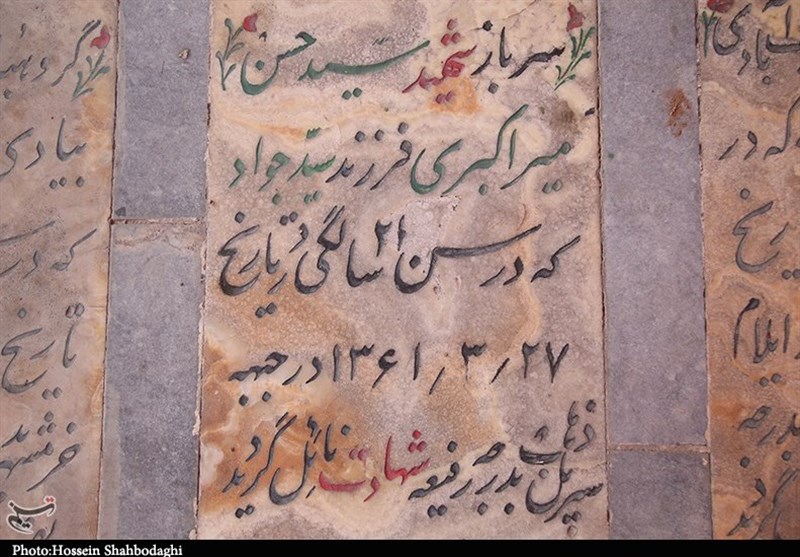 سرباز شهید سید حسن
میراکبری فرزند سیّد جواد
که در سن ۲۱ سالگی در تاریخ
۲۷/۳/۱۳۶۱ در جبهه
ذهاب
سرپل بدرجه رفیعه شهادت نائل گردید
آبادی
که در
ایلام
بدرجه
که در
تاریخ
خرمشهر
تسنیم
Photo:Hossein Shahbodaghi